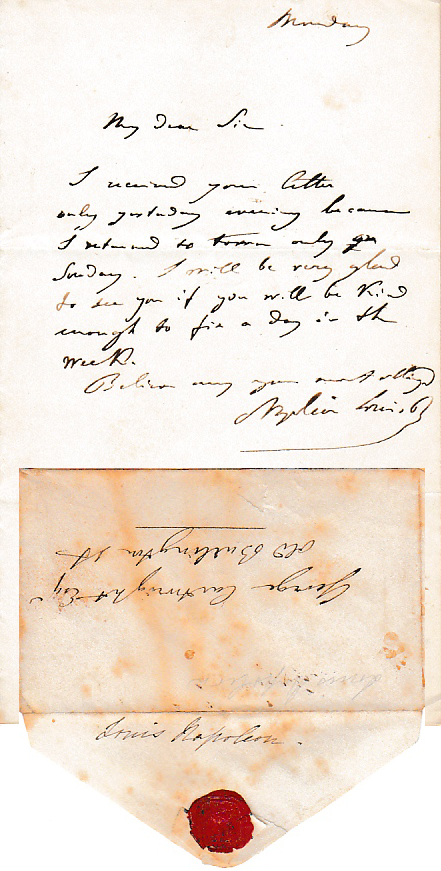 Monday
My dear Sir
I received your letter
only yesterday evening because
I returned to town only
Sonday. I will be very glad
to see you if you will be kind
enough to fix a day in the
week.
Believe my your most obliged
Napoleon Louis B
George Cartwright Esqr
Old Burlington St
Louis Napoleon.